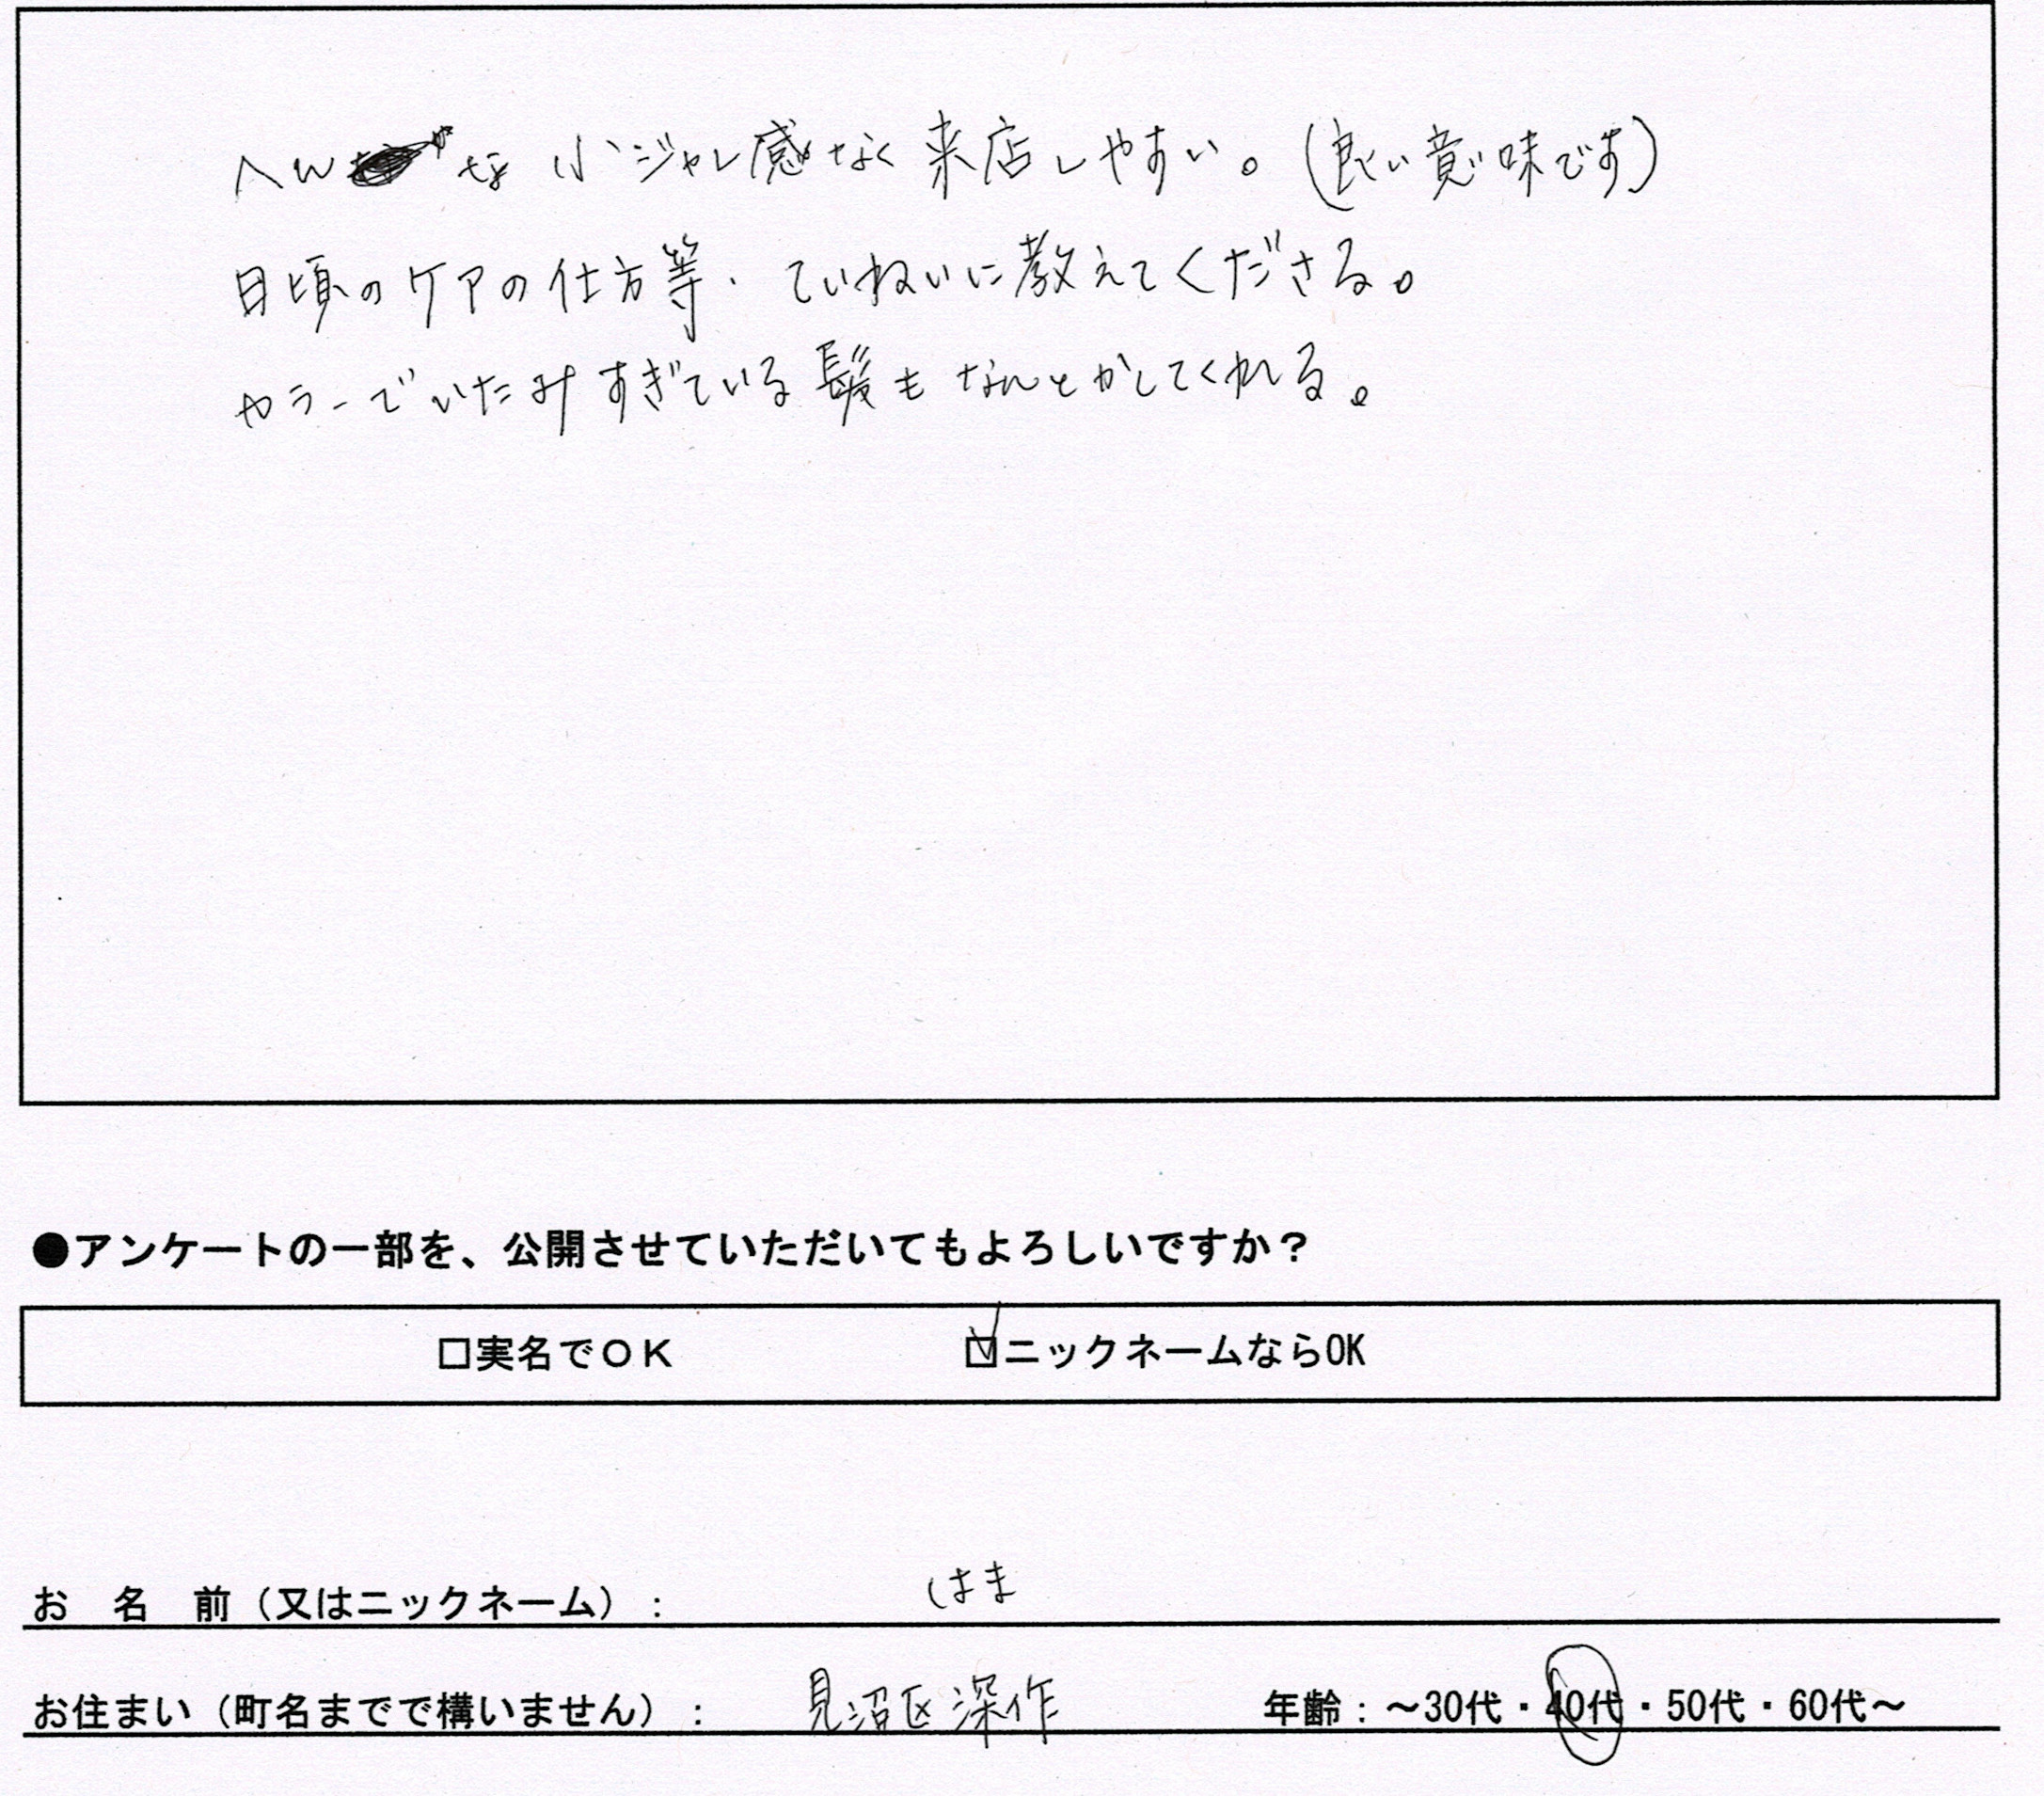 へんな小ジャレ感なく来店しやすい。(良い意味です)
日頃のケアの仕方等、ていねいに教えてくださる。
カラーでいたみすぎている髪もなんとかしてくれる。
●アンケートの一部を、公開させていただいてもよろしいですか？
□実名でＯＫ ☑ニックネームならOK
お　名　前（又はニックネーム）： はま
お住まい（町名までで構いません）： 見沼区深作 年齢：～30代・40代・50代・60代～